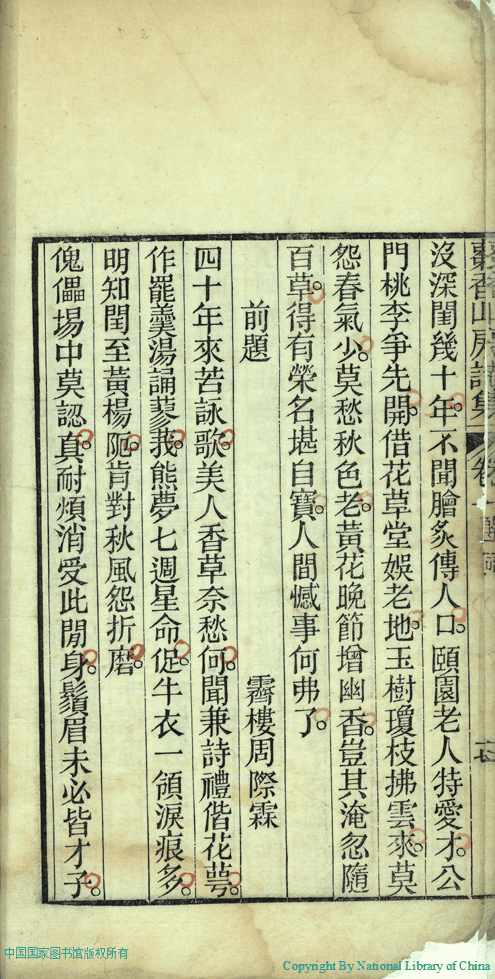 沒深閨幾十年不聞膾炙傳人口頤園老人特愛才公
門桃李爭先開借花草堂娛老地玉樹瓊枝拂雲來莫
怨春氣少莫愁秋色老黃花晚節增幽香豈其淹忽隨
百草得有榮名堪自寶人間憾事何弗了
前題
霽樓周際霖
四十年來苦詠歌美人香草奈愁何聞兼詩禮偕花萼
作罷羹湯誦蓼莪熊夢七週星命促牛衣一領淚痕多
明知閏至黃楊阨肯對秋風怨折磨
傀儡場中莫認真耐煩消受此閒身鬚眉未必皆才子
中国国家图书馆版权所有
Copyright By National Library of China